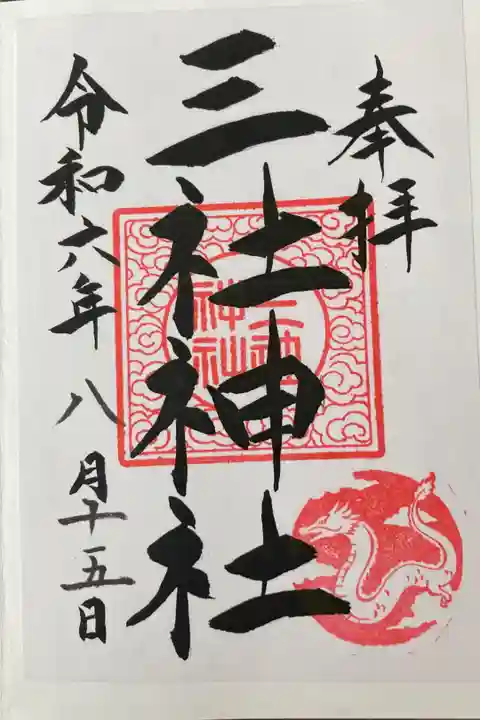 奉拝
三社神社
三社
神社
令和六年八月十五日